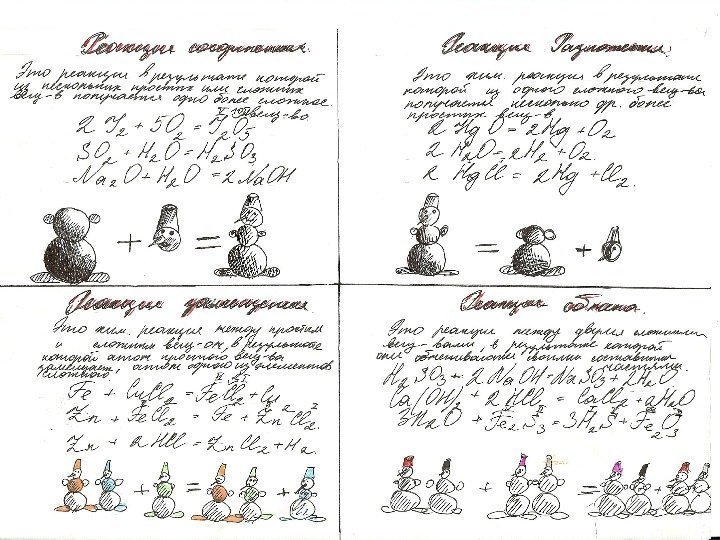 Реакции соединения.
Это реакции в результате которой
из нескольких простых или сложных
вещ-в получается одно более сложное
вещ-во
2 J₂ + 5O₂ = J₂O₅
SO₂ + H₂O = H₂SO₃
Na₂O + H₂O = 2 NaOH
+ =
Реакции Разложения.
Это хим. реакция в результате
которой из одного сложного вещ-ва
получается несколько др. более
простых вещ-в
2 HgO = 2Hg + O₂
2 H₂O = 2H₂ + O₂.
2 HgCl = 2Hg + Cl₂.
= +
Реакции замещения
Это хим. реакция между простым
и сложным вещ-ом, в результате
которой атом простого вещ-ва
замещает, атом одного из элементов
сложного
II I
Fe + CuCl₂ = FeCl₂ + Cu
Zn + FeCl₂ = Fe + ZnCl₂
Zn + 2HCl = ZnCl₂ + H₂.
+ = +
Реакции обмена.
Это реакции между двумя сложными
вещ-вами, в результате которой
они обмениваются своими составными
частями.
H₂SO₃ + 2 NaOH = Na₂SO₃ + 2H₂O
Ca(OH)₂ + 2 HCl = CaCl₂ + 2H₂O
3H₂O + Fe₂S₃ = 3H₂S + Fe₂O₃
+ = +